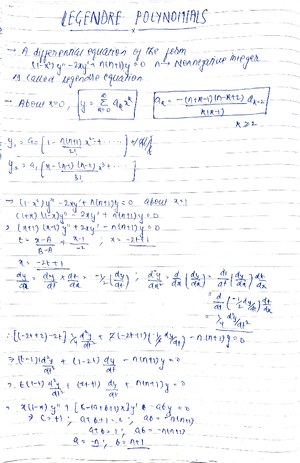 LEGENDRE POLYNOMIALS
→ A differential equation of the form
(1-x²)y" - 2xy' + n(n+1)y = 0 n → Nonnegative integer
is called Legendre equation
→ About x=0, y = Σ aₖ xᵏ aₖ = -(n+k-1)(n-k+2) aₖ₋₂ / k(k-1)
k ≥ 2
y₁ = a₀ [1 - n(n+1)x²/2! + ...]
y₂ = a₁ [x - (n-1)(n+2)x³/3! + ...]
→ (1-x²)y" - 2xy' + n(n+1)y = 0 about x=1
(1+x)(1-x)y" - 2xy' + n(n+1)y = 0
⇒ (x+1)(x-1)y" + 2xy' - n(n+1)y = 0
t = x-A / B-A = x-1 / -2 ; x = -2t+1
x = -2t+1
dy/dx = dy/dt × dt/dx = -½ (dy/dt) ; d²y/dx² = d/dx (dy/dx) = d/dt (dy/dx) dt/dx
= d/dt (-½ dy/dt) dt/dx
= ¼ d²y/dt²
∴ [(-2t+2)(-2t)] ¼ d²y/dt² + 2(-2t+1)(-½ dy/dt) - n(n+1)y = 0
⇒ t(t-1) d²y/dt² + (1-2t) dy/dt - n(n+1)y = 0
⇒ t(1-t) d²y/dt² + dy/dt + n(n+1)y = 0
x(1-x)y" + [c-(a+b+1)x]y' - aby = 0
⇒ c = 1 ; a+b+1 = 2 ; ab = -n(n+1)
a+b = 1 ; ab = -n(n+1)
a = -n ; b = n+1